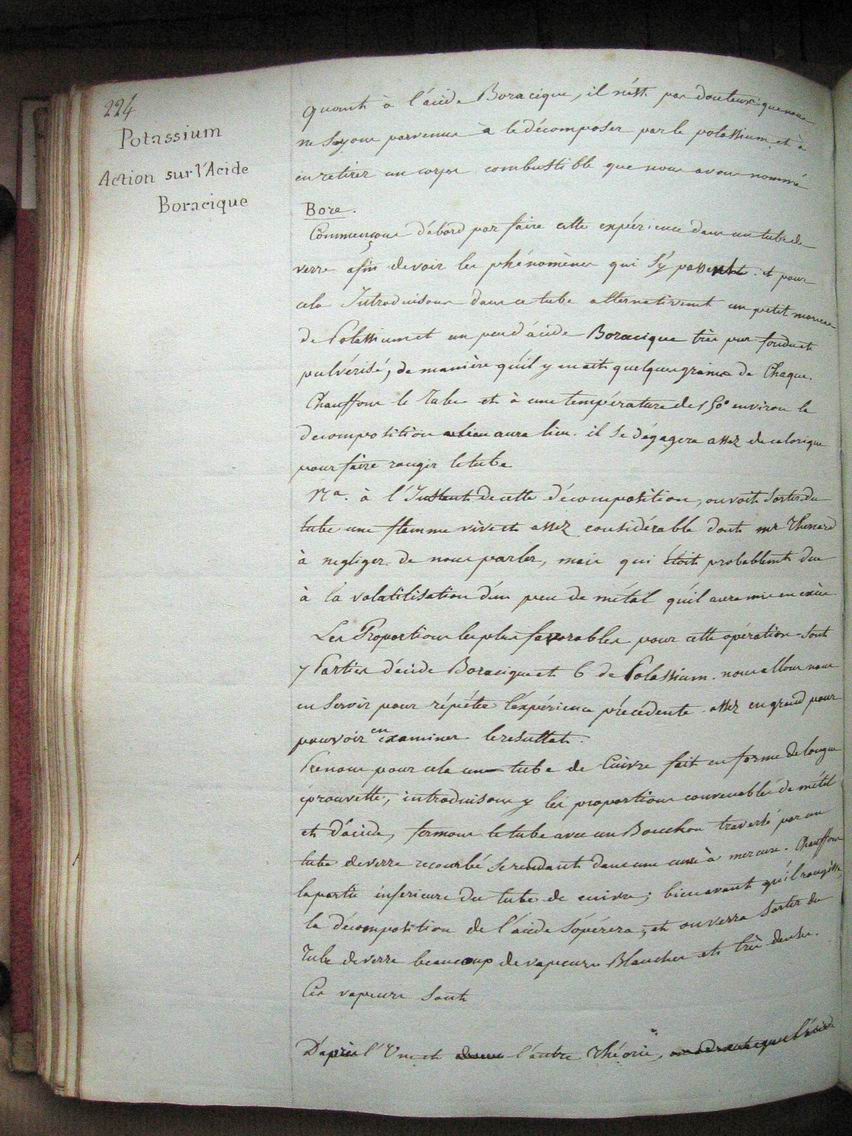 224
Potassium
Action sur l'Acide
Boracique
Quant à l'acide Boracique, il n'est pas douteux que nous
ne soyons parvenus à le décomposer par le potassium et à
en retirer un corps combustible que nous avons nommé
Bore.
Commençons d'abord par faire cette expérience dans un tube de
verre afin de voir les phénomènes qui s'y passent. et pour
cela Introduisons dans ce tube alternativement un petit morceau
de Potassium et un peu d'acide Boracique très pur fondu et
pulvérisé, de manière qu'il y en ait quelques grains de Chaque.
Chauffons le Tube et à une température de 150° environ la
decomposition aura lieu. il se dégagera assez de calorique
pour faire rougir le tube
Na. à l'Instant de cette décomposition, on voit sortir du
tube une flamme vive et assez considérable dont mr Thenard
à negliger de nous parler, mais qui étoit probablemt due
à la volatilisation d'un peu de métal qu'il aura mis en excès
Les Proportions les plus favorables pour cette opération sont
7 Parties d'acide Boracique et 6 de Potassium. nous allons nous
en servir pour répéter l'expérience précédente assez en grand pour
pouvoir en examiner le resultat.
Prenons pour cela un tube de Cuivre fait en forme de longue
éprouvette, introduisons y les proportions convenables de métal
et d'acide, fermons le tube avec un Bouchon traversé par un
tube de verre recourbé se rendant dans une cuve à mercure. Chauffons
la partie inférieure du tube de cuivre; bien avant qu'il rougisse,
la décomposition de l'acide s'opérera, et on verra sortir du
Tube de verre beaucoup de vapeurs Blanches et très denses.
Ces vapeurs sont
D'après l'Une et l'autre Théorie,